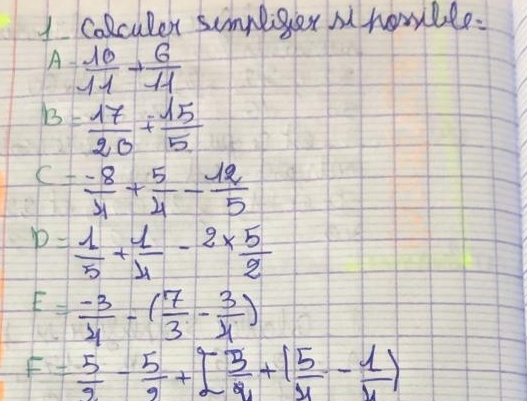 1_ Calculer simplifier si possible:
A = 10/11 + 6/11
B = 17/20 ÷ -15/5
C = -8/4 + 5/4 - 12/5
D = 1/5 + 1/4 - 2 × 5/2
E = -3/4 - (7/3 - 3/4)
F = 5/2 - 5/2 + [3/4 + (5/4 - 1/4)